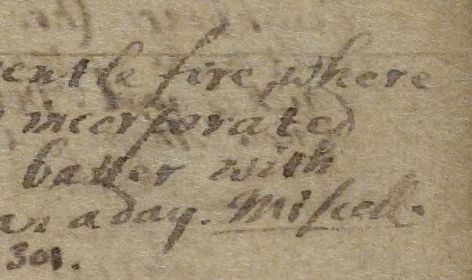 entle fire where
incorporated
batter with
an a day. Miscell.
301.